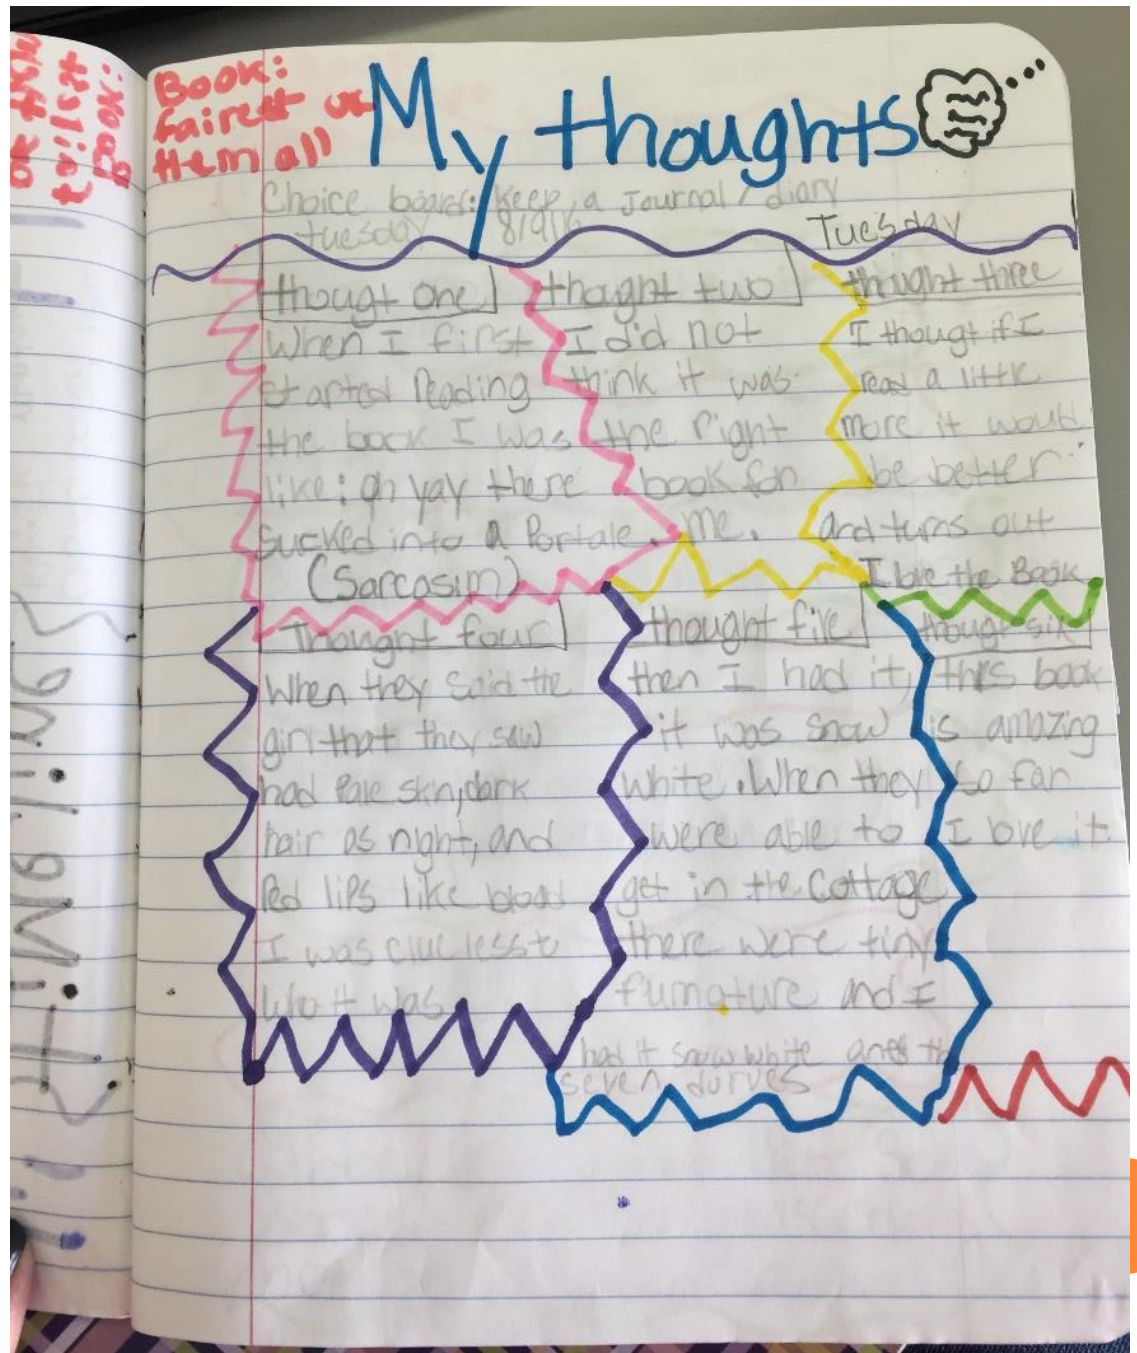 Book:
fairest of
them all
My thoughts
Choice board: Keep a Journal / diary
tuesday 8/9/16 Tuesday
thougt one
When I first
started Reading
the book I was
like: oh yay there
sucked into a Portale.
(Sarcasim)
thought two
I did not
think it was
the right
book for
me.
thought three
I thougt if I
read a little
more it would
be better
and turns out
I love the Book
Thought four
When they said the
girl that they saw
had Pale skn, dark
hair as night, and
Red lips like blood
I was clueless to
who it was
thought five
then I had it,
it was snow
white. When they
were able to
get in the Cottage
there were tiny
furnature and I
had it snow white and th
seven dorves
though six
this book
is amazing
so far
I love it.